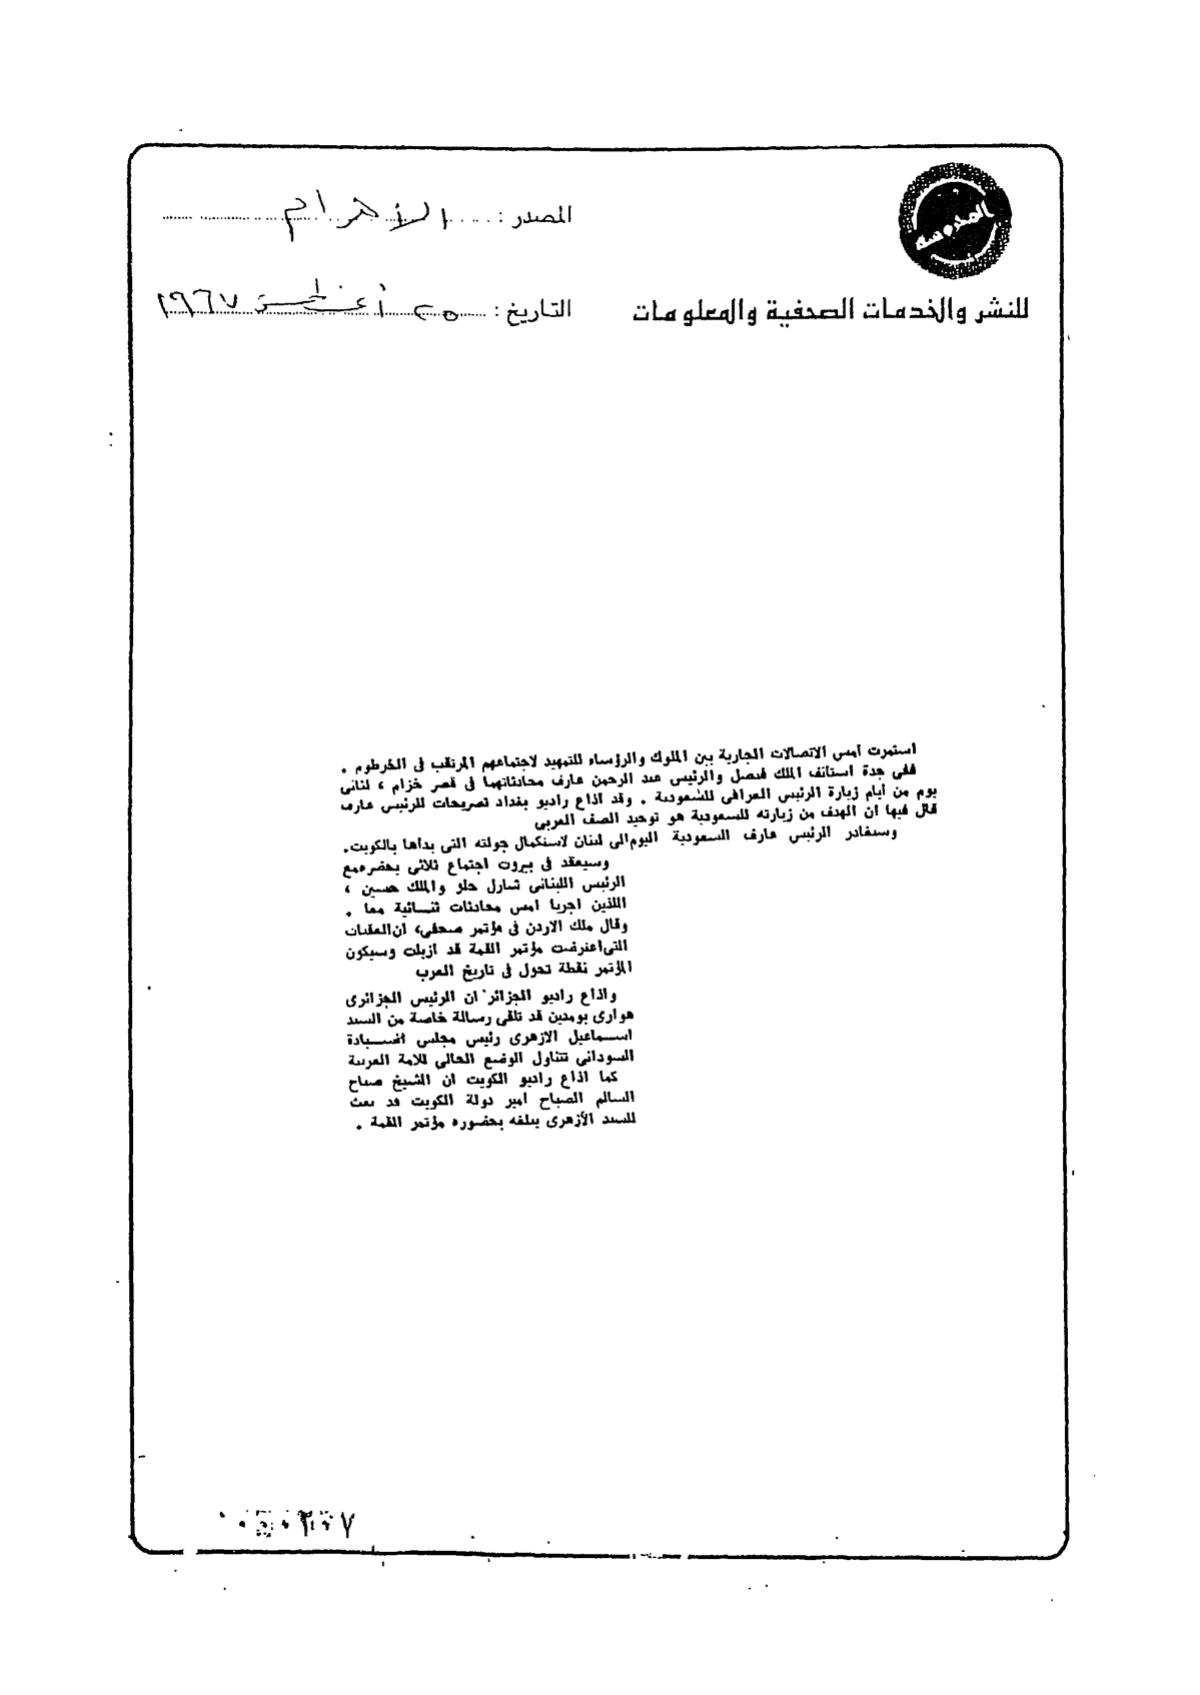 المصدر : الأهرام
التاريخ : ٢٥ أغسطس ١٩٦٧
للنشر والخدمات الصحفية والمعلومات
استمرت امس الاتصالات الجارية بين الملوك والرؤساء للتمهيد لاجتماعهم المرتقب فى الخرطوم .
ففى جدة استانف الملك فيصل والرئيس عبد الرحمن عارف محادثاتهما فى قصر خزام ، لثانى
يوم من أيام زيارة الرئيس العراقى للسعودية . وقد اذاع راديو بغداد تصريحات للرئيس عارف
قال فيها ان الهدف من زيارته للسعودية هو توحيد الصف العربى
وسيغادر الرئيس عارف السعودية اليوم الى لبنان لاستكمال جولته التى بدأها بالكويت.
وسيعقد فى بيروت اجتماع ثلاثى يحضره مع
الرئيس اللبنانى شارل حلو والملك حسين ،
اللذين اجريا امس محادثات ثنـــائية معا .
وقال ملك الاردن فى مؤتمر صحفى، ان العقبات
التى اعترضت مؤتمر القمة قد ازيلت وسيكون
المؤتمر نقطة تحول فى تاريخ العرب
واذاع راديو الجزائر ان الرئيس الجزائرى
هوارى بومدين قد تلقى رسالة خاصة من السيد
اســماعيل الازهرى رئيس مجلس الســـيادة
السودانى تتناول الوضع الحالى للامة العربية
كما اذاع راديو الكويت ان الشيخ صباح
السالم الصباح امير دولة الكويت قد بعث
للسيد الأزهرى يبلغه بحضوره مؤتمر القمة .